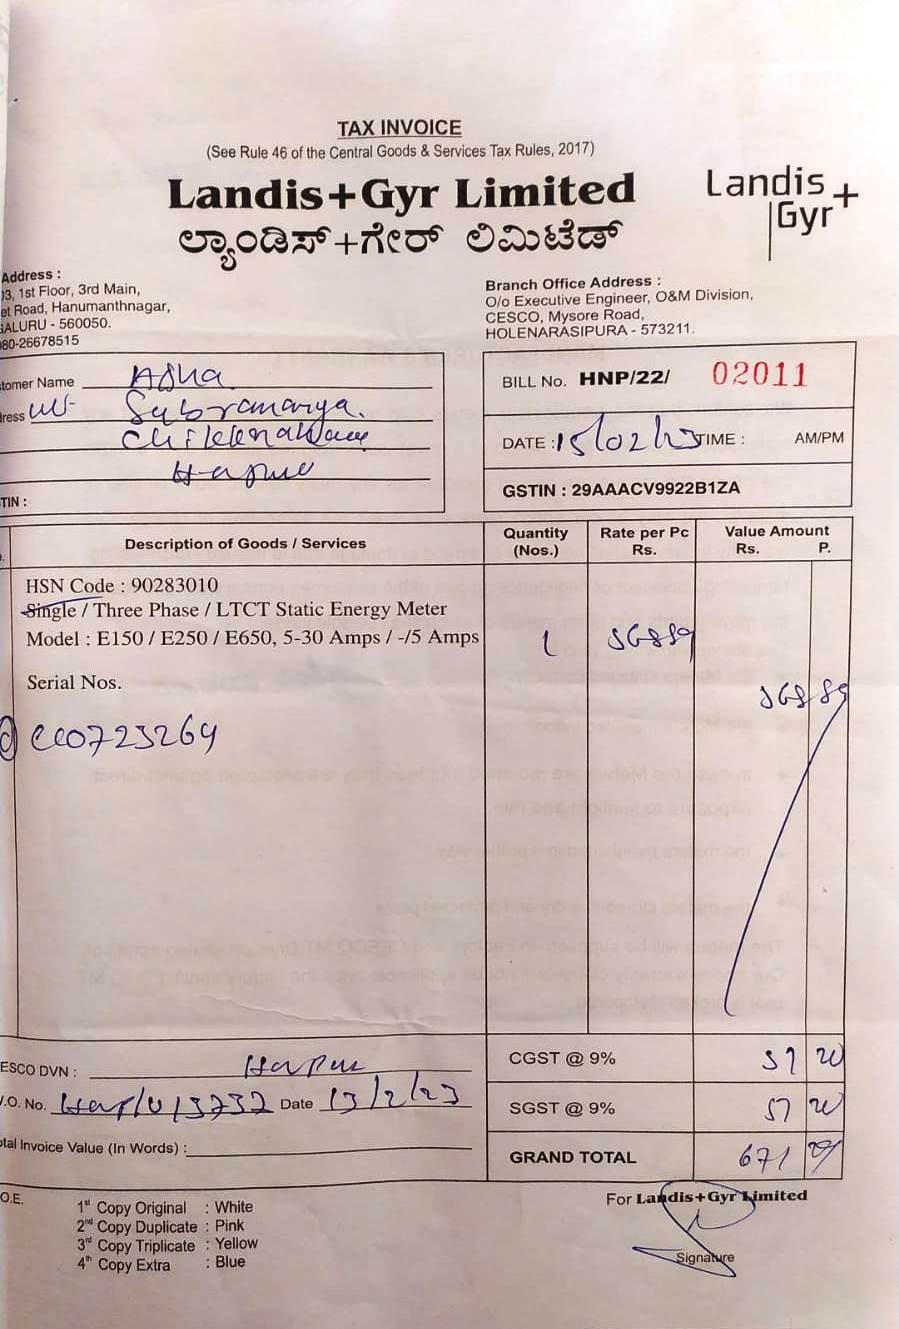 TAX INVOICE
(See Rule 46 of the Central Goods & Services Tax Rules, 2017)
Landis+Gyr Limited
ಲ್ಯಾಂಡಿಸ್+ಗೇರ್ ಲಿಮಿಟೆಡ್
Landis+
Gyr
Address :
03, 1st Floor, 3rd Main,
et Road, Hanumanthnagar,
GALURU - 560050.
080-26678515
Branch Office Address :
O/o Executive Engineer, O&M Division,
CESCO, Mysore Road,
HOLENARASIPURA - 573211.
tomer Name Asha
ress
Subramanya.
BILL No. HNP/22/ 02011
DATE : 15/02/23 TIME : AM/PM
GSTIN : 29AAACV9922B1ZA
TIN :
Description of Goods / Services
Quantity (Nos.)
Rate per Pc Rs.
Value Amount Rs. P.
HSN Code : 90283010
Single / Three Phase / LTCT Static Energy Meter
Model : E150 / E250 / E650, 5-30 Amps / -/5 Amps 1
Serial Nos.
ESCO DVN :
CGST @ 9% 51 20
.O. No. Date 13/2/23
SGST @ 9% 51 20
tal Invoice Value (In Words) :
GRAND TOTAL 671
O.E.
1st Copy Original : White
2nd Copy Duplicate : Pink
3rd Copy Triplicate : Yellow
4th Copy Extra : Blue
For Landis+Gyr Limited
Signature